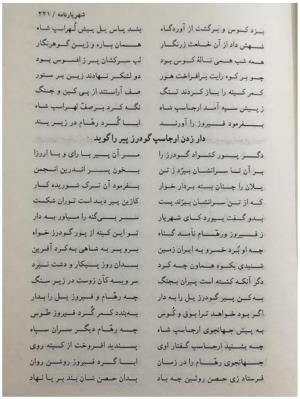 شهریارنامه / ۲۲۱
بزد کوس و برگشت از آوردگاه بشد پاس یل پیش لهراسپ شاه
شهش داد از آن خلعت زرنگار همان باره و زین گوهرنگار
همه شب همی نالهٔ کوس بود لب سرکشان پر ز افسوس بود
چو بر کوه رایت برافراخت هور دو لشکر نهادند زین بر ستور
کمر کینه را باز کردند تنگ صف آراستند از پی کین و جنگ
ز پیش سپه آمد ارجاسپ شاه نگه کرد بر صف لهراسپ شاه
بفرمود فیروز را آن زمان
دار زدن ارجاسپ گودرز پیر را گوید
دگر پور کشواد گودرز را
بر آن تا سرانشان ببرّد ز تن بخون پسر اندرین انجمن
یلان را چنان بسته بردار خوار بفرمود آن ترک شوریده کار
که از تن سرانشان ببرّند پست
بدو گفت بیورد کای شهریار سر بی‌گنه را میاور به دار
ز فیروز و رهّام نامد گناه تو این کینه از پور گودرز خواه
چه او بُرد خسرو به ایران زمین برو بر به شاهی بکرد آفرین
شنیدی بکوه هماون چه کرد بدان روز پیکار و دشت نبرد
دگر آنکه کشته است پیران بجنگ سر ویسه کآن زوست در زیر سنگ
به کن پیر گودرز یل را به دار چه رهّام و فیروز یل را بدار
اگر بود خواهد ترا بوق و کوس به بند کمر گرد فیروز طوس
به پیش جهانجوی ارجاسپ شاه چه رهّام دیگر سران سپاه
چه بشنید ارجاسپ گفتار اوی پسندید افروخت از کینه روی
جهانجوی رهّام را در زمان ابا گرد فیروز روشن روان
فرستاد زی حصن روئین چه باد بدان حصن شان بند بر پا نهاد